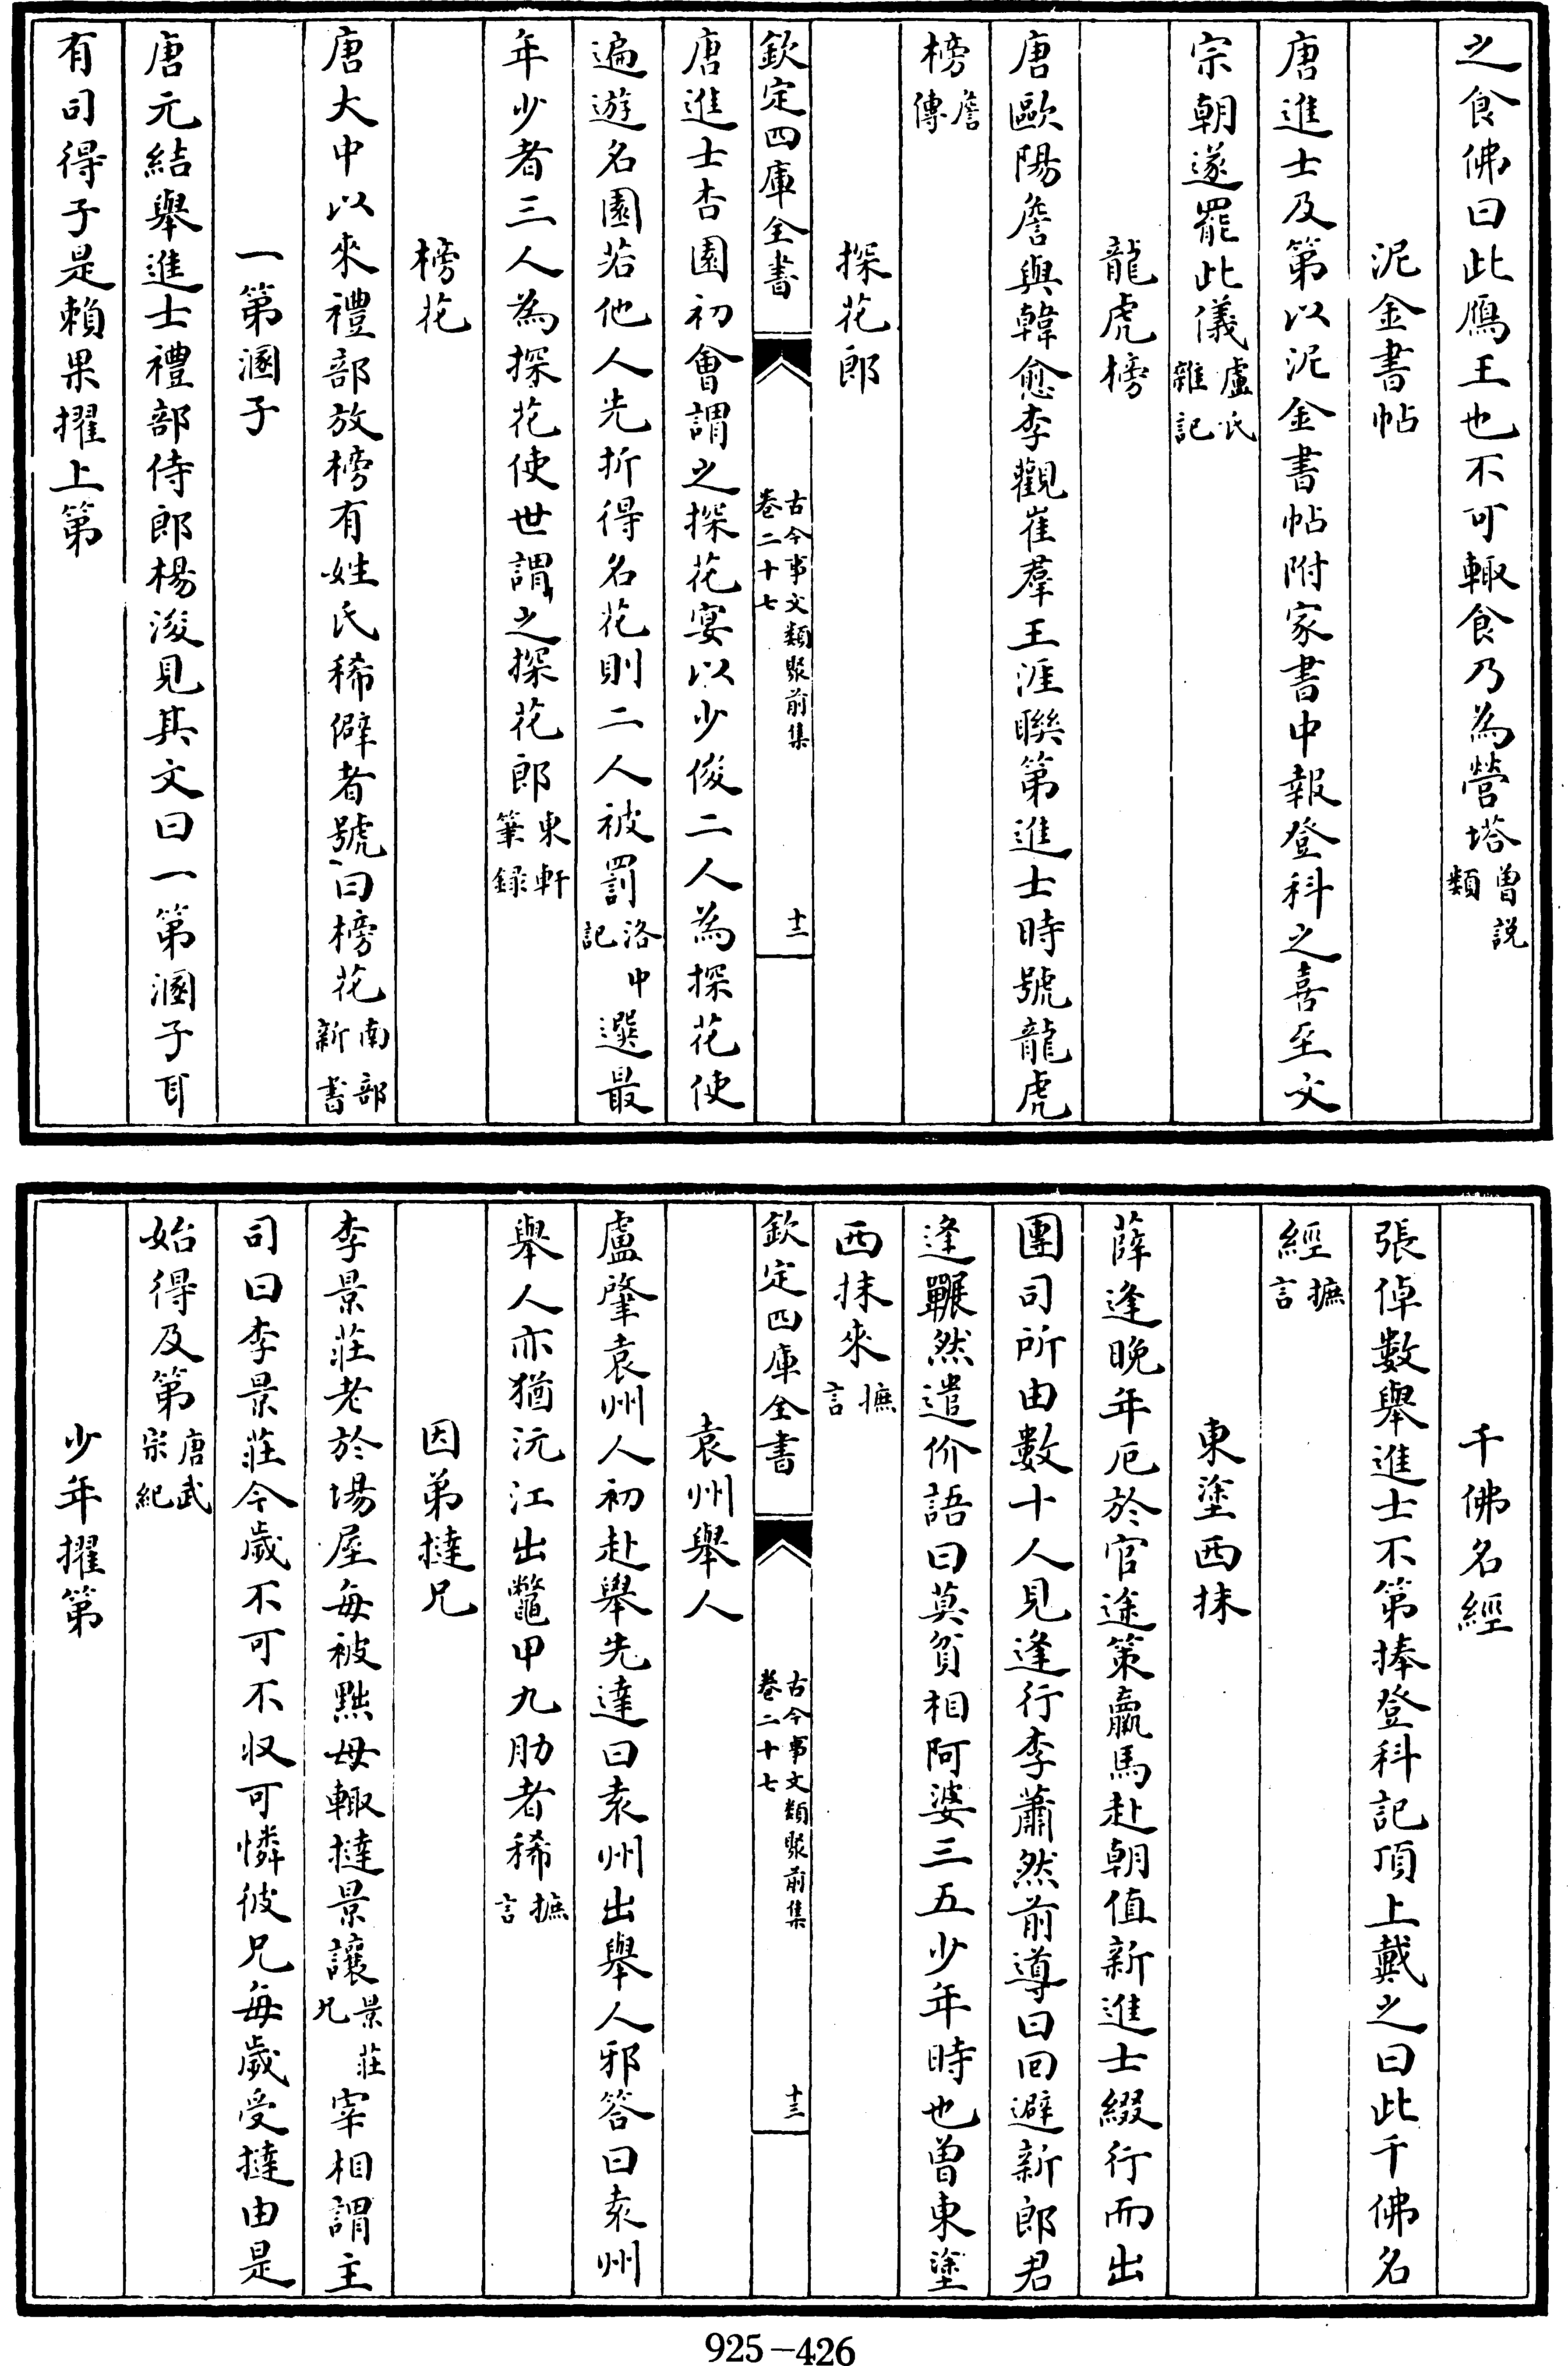 之食佛曰此鴈王也不可輙食乃為營塔曾説類
泥金書帖
唐進士及第以泥金書帖附家書中報登科之喜至文
宗朝遂罷此儀盧氏雜記
龍虎榜
唐歐陽詹與韓愈李觀崔羣王涯聨第進士時號龍虎
榜詹傳
探花郎
欽定四庫全書
古今事文類聚前集
卷二十七
十二
唐進士杏園初會謂之探花宴以少俊二人為探花使
遍遊名園若他人先折得名花則二人被罰洛中記選最
年少者三人為探花使世謂之探花郎東軒筆録
榜花
唐大中以來禮部放榜有姓氏稀僻者號曰榜花南部新書
一第溷子
唐元結舉進士禮部侍郎楊浚見其文曰一第溷子耳
有司得子是賴果擢上第
千佛名經
張倬數舉進士不第捧登科記頂上戴之曰此千佛名
經摭言
東塗西抹
薛逢晚年厄於官途策羸馬赴朝值新進士綴行而出
團司所由數十人見逢行李蕭然前導曰回避新郎君
逢囅然遣价語曰莫貧相阿婆三五少年時也曽東塗
西抹來摭言
欽定四庫全書
古今事文類聚前集
卷二十七
十三
袁州舉人
盧肇袁州人初赴舉先達曰袁州出舉人邪答曰袁州
舉人亦猶沅江出鼈甲九肋者稀摭言
因弟撻兄
李景莊老於場屋每被黜母輙撻景讓景莊兄宰相謂主
司曰李景莊今歲不可不収可憐彼兄每歲受撻由是
始得及第唐武宗紀
少年擢第
925-426